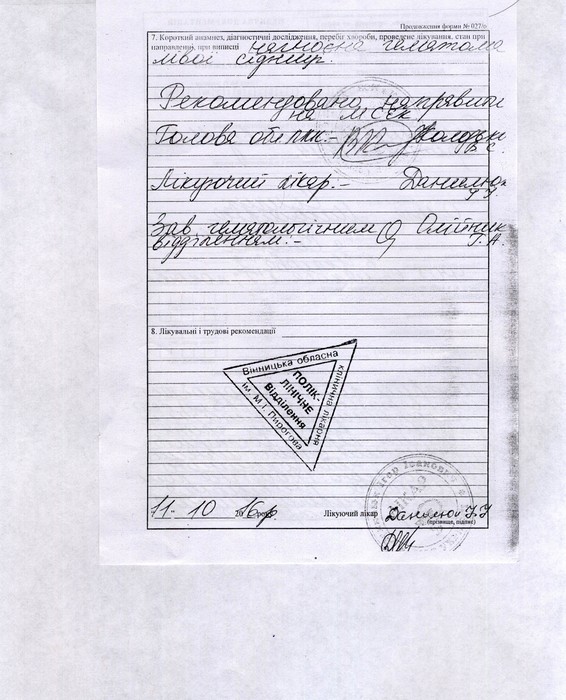 Продовження форми № 027/о
7. Короткий анамнез, діагностичні дослідження, перебіг хвороби, проведене лікування, стан при
направленні, при виписці нагноєна гематома
лівої сідниці.
Рекомендовано направити
на МСЕК
Голова обл ЛКК.-
В.С.
Лікуючий лікар.- Данилюк
Зав. гематологічним Олійник
відділенням.- Г.А.
8. Лікувальні і трудові рекомендації
Вінницька обласна
клінічна лікарня
ім. М.І. Пирогова
ПОЛІК-
ЛІНІЧНЕ
Відділення
11. 10 2016 року Лікуючий лікар Данилюк
(прізвище, підпис)